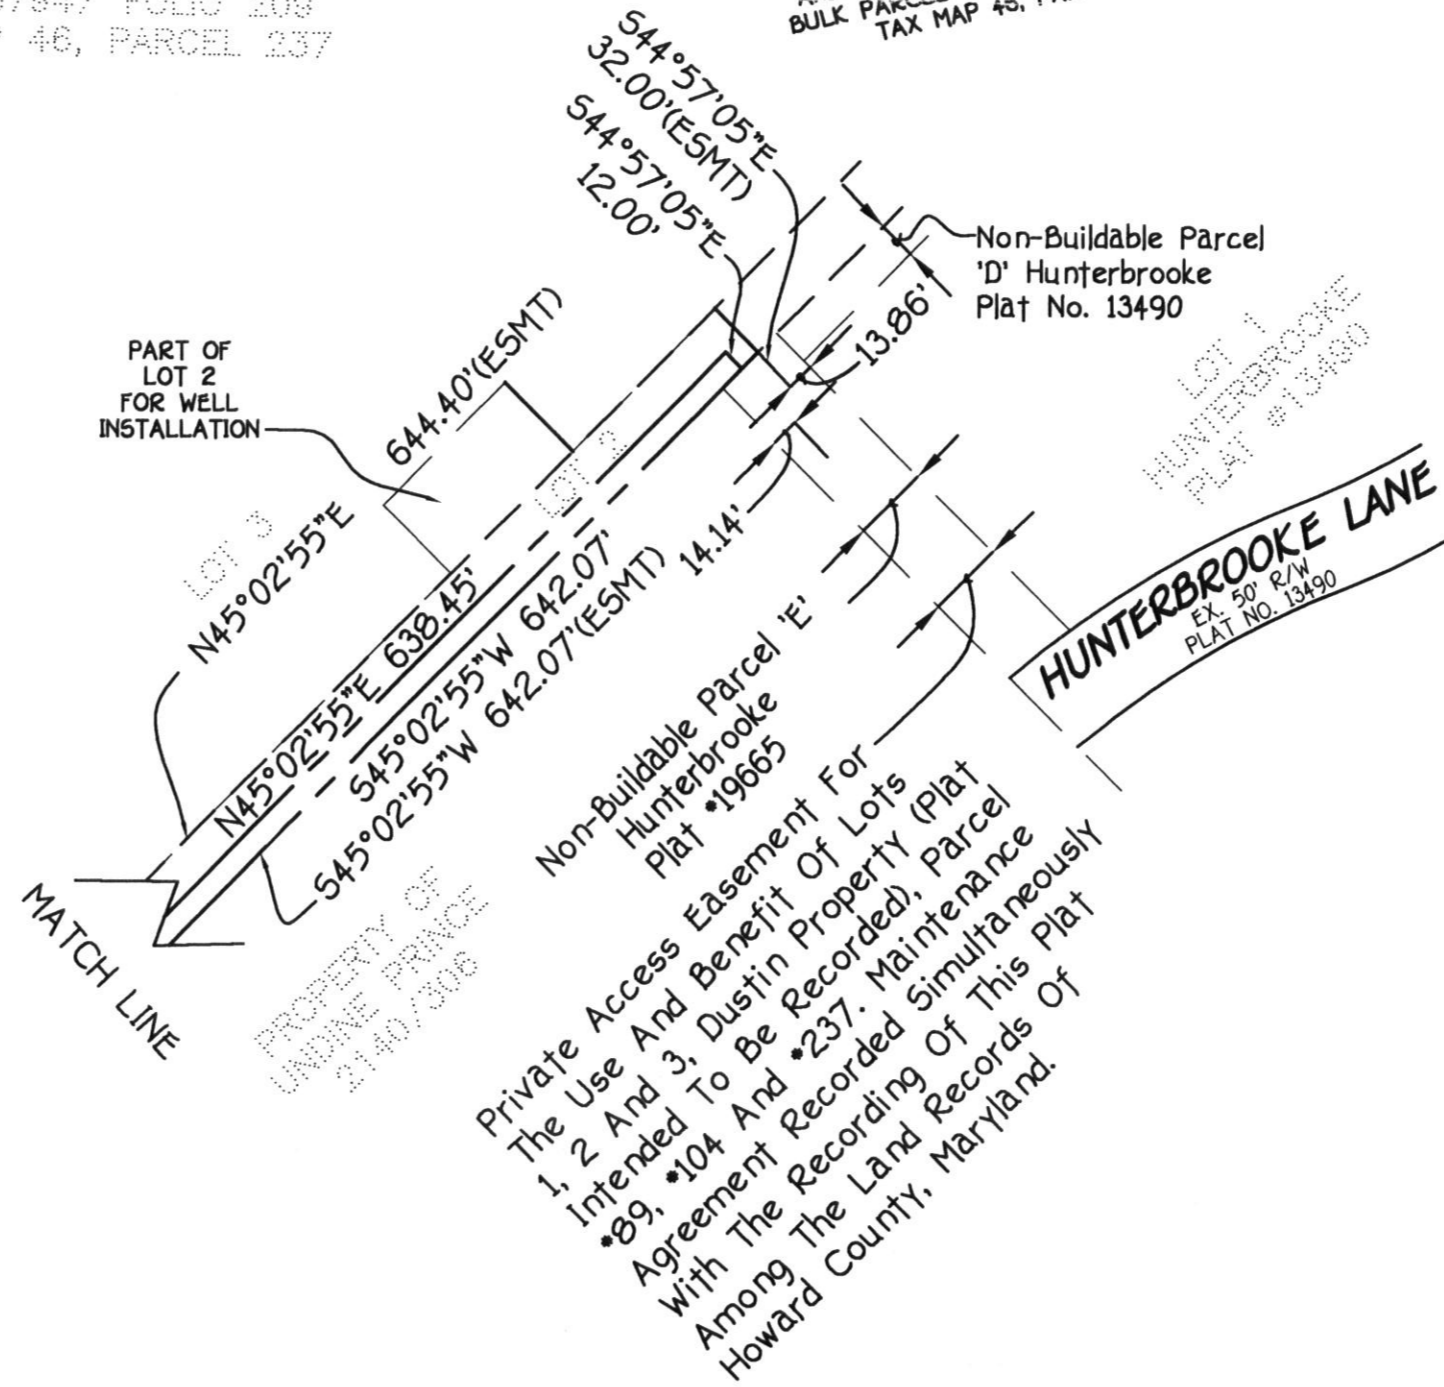 46, PARCEL 237
BULK
TAX MAP
S44°57'05"E
32.00'(ESMT)
S44°57'05"E
12.00'
Non-Buildable Parcel
'D' Hunterbrooke
Plat No. 13490
13.86'
LOT 1
HUNTERBROOKE
PLAT #13490
PART OF
LOT 2
FOR WELL
INSTALLATION
644.40'(ESMT)
N45°02'55"E
LOT 3
LOT 2
N45°02'55"E 638.45'
S45°02'55"W 642.07'
S45°02'55"W 642.07'(ESMT)
14.14'
HUNTERBROOKE LANE
EX. 50' R/W
PLAT NO. 13490
Non-Buildable Parcel 'E'
Hunterbrooke
Plat #19665
MATCH LINE
PROPERTY OF
UNDINE PRINCE
2140/306
Private Access Easement For
The Use And Benefit Of Lots
1, 2 And 3, Dustin Property (Plat
Intended To Be Recorded), Parcel
#89, #104 And #237. Maintenance
Agreement Recorded Simultaneously
With The Recording Of This Plat
Among The Land Records Of
Howard County, Maryland.